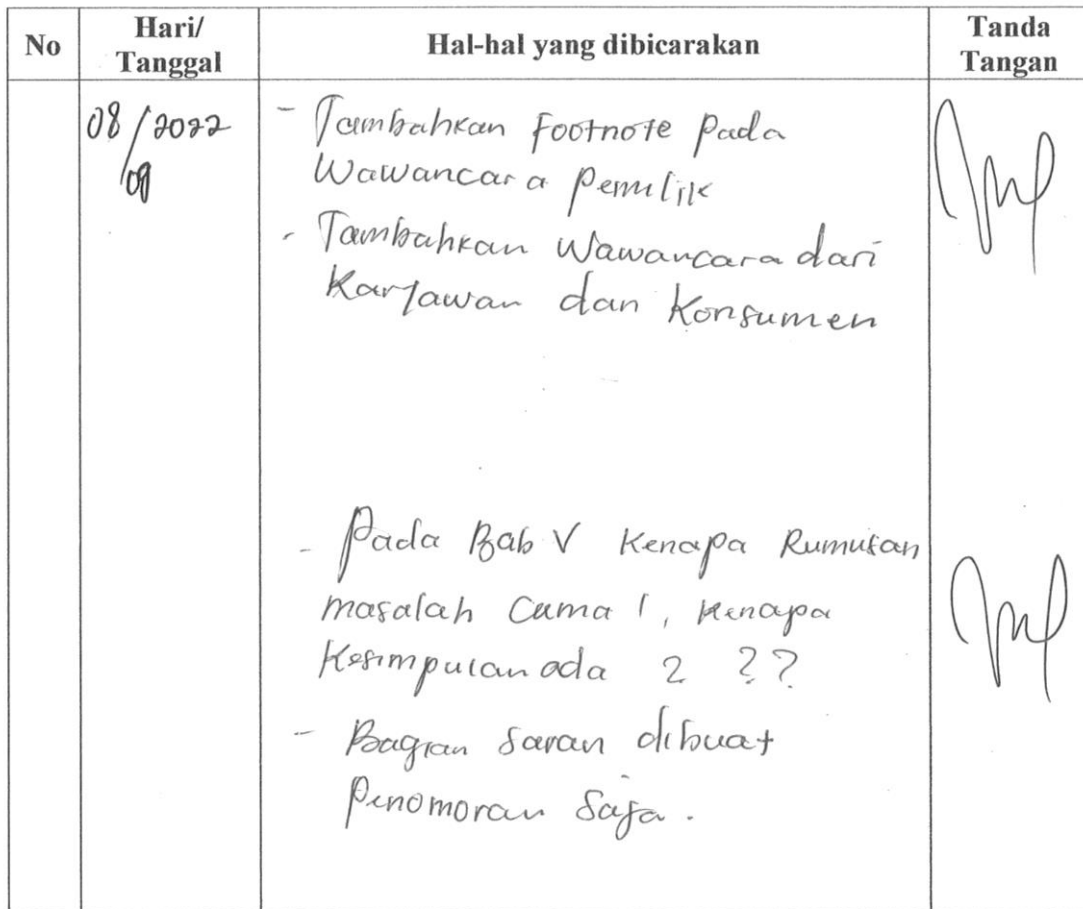 No
Hari/
Tanggal
Hal-hal yang dibicarakan
Tanda
Tangan
08/2022
/09
- Tambahkan Footnote pada
Wawancara pemilik
- Tambahkan Wawancara dari
Karyawan dan Konsumen
- Pada Bab V Kenapa Rumusan
masalah Cuma 1, Kenapa
Kesimpulan ada 2 ??
- Bagian Saran dibuat
Penomoran Saja.